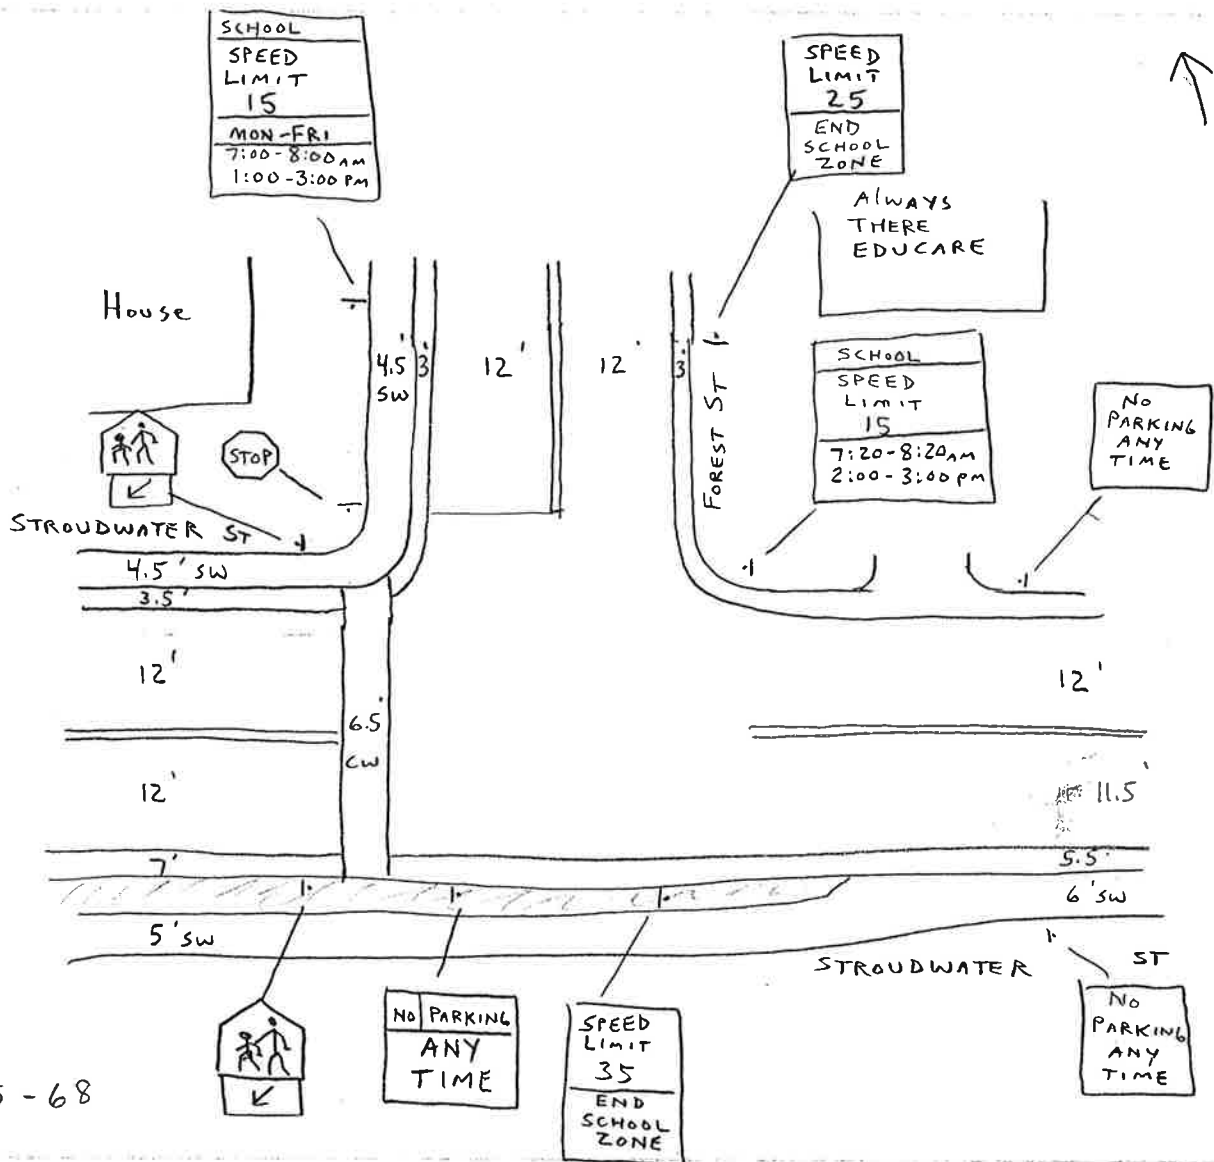 SCHOOL
SPEED
LIMIT
15
MON-FRI
7:00-8:00 AM
1:00-3:00 PM
SPEED
LIMIT
25
END
SCHOOL
ZONE
AlWAYS
THERE
EDUCARE
House
4.5'
SW
3'
12'
12'
3'
FOREST ST
SCHOOL
SPEED
LIMIT
15
7:20-8:20 AM
2:00-3:00 PM
NO
PARKING
ANY
TIME
STOP
STROUDWATER ST
4.5' SW
3.5'
12'
12'
6.5'
CW
12'
11.5'
7'
5.5'
6' SW
5' SW
STROUDWATER ST
NO PARKING
ANY
TIME
SPEED
LIMIT
35
END
SCHOOL
ZONE
NO
PARKING
ANY
TIME
- 68